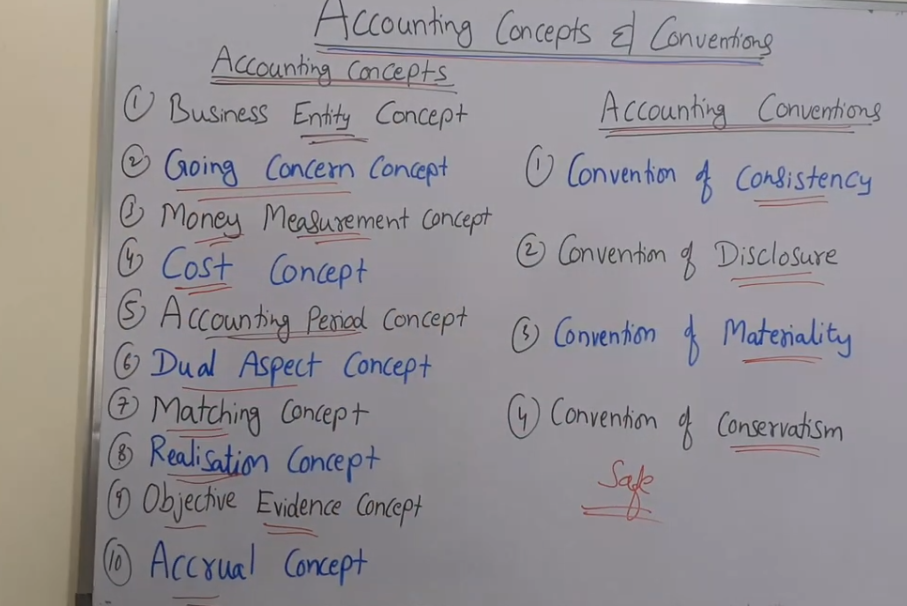 Accounting Concepts & Conventions
Accounting Concepts
① Business Entity Concept
② Going Concern Concept
③ Money Measurement Concept
④ Cost Concept
⑤ Accounting Period Concept
⑥ Dual Aspect Concept
⑦ Matching Concept
⑧ Realisation Concept
⑨ Objective Evidence Concept
⑩ Accrual Concept
Accounting Conventions
① Convention of Consistency
② Convention of Disclosure
③ Convention of Materiality
④ Convention of Conservatism
Safe